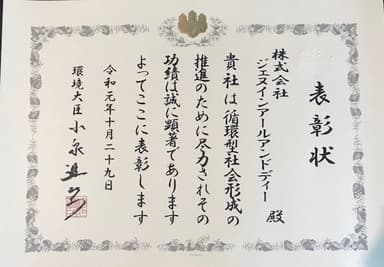 表彰状
株式会社
ジェヌインアールアンドディー 殿
貴社は循環型社会形成の
推進のために尽力されその
功績は誠に顕著であります
よってここに表彰します
令和元年十月二十九日
環境大臣 小泉進次郎